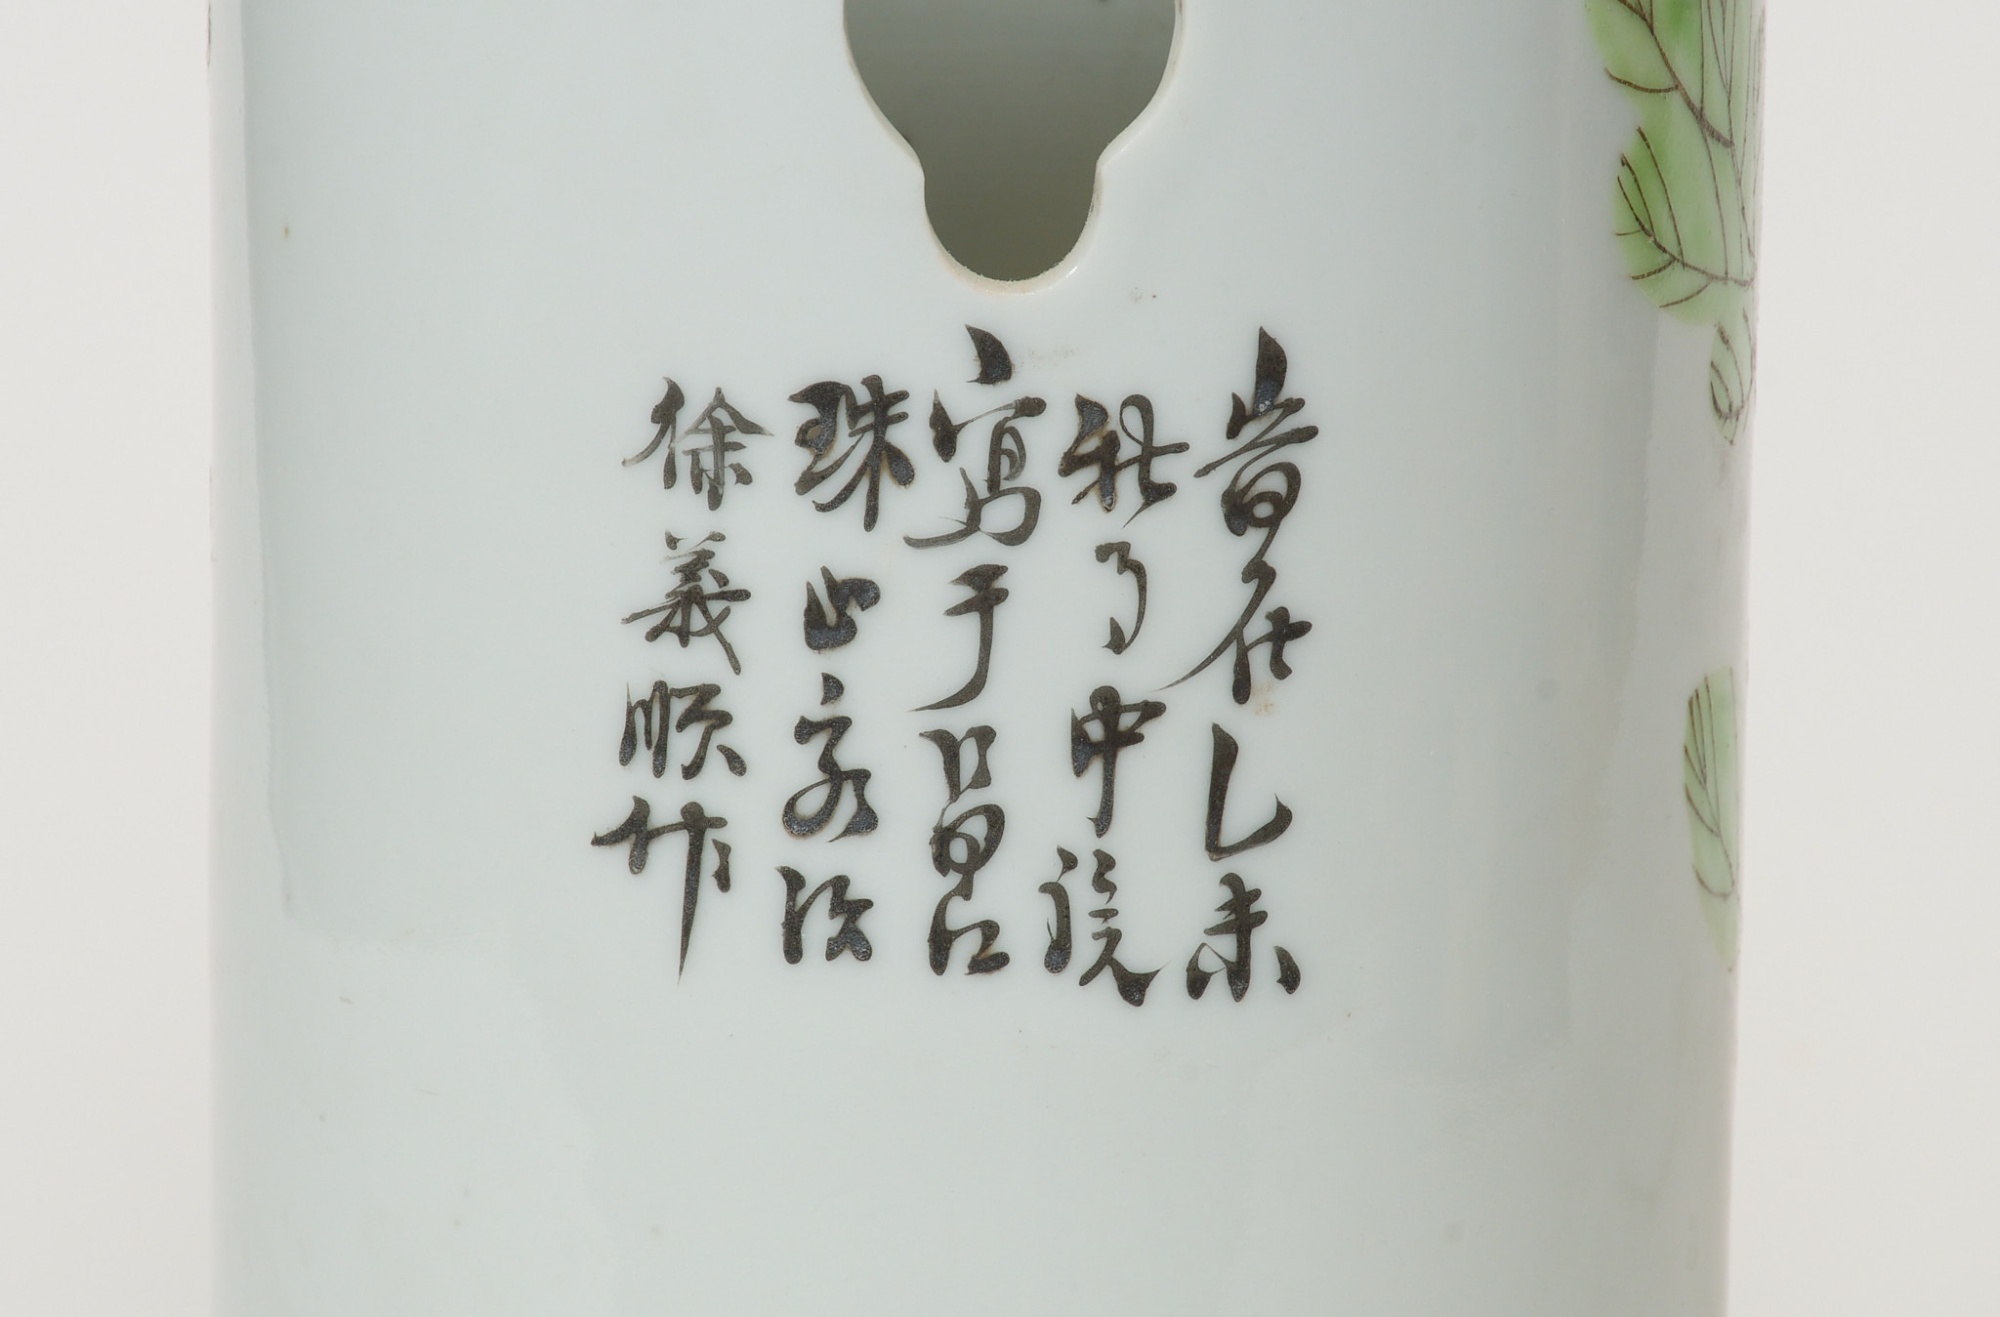 岩在乙未
秋月中浣
寫于昌江
珠山客次
徐義順作